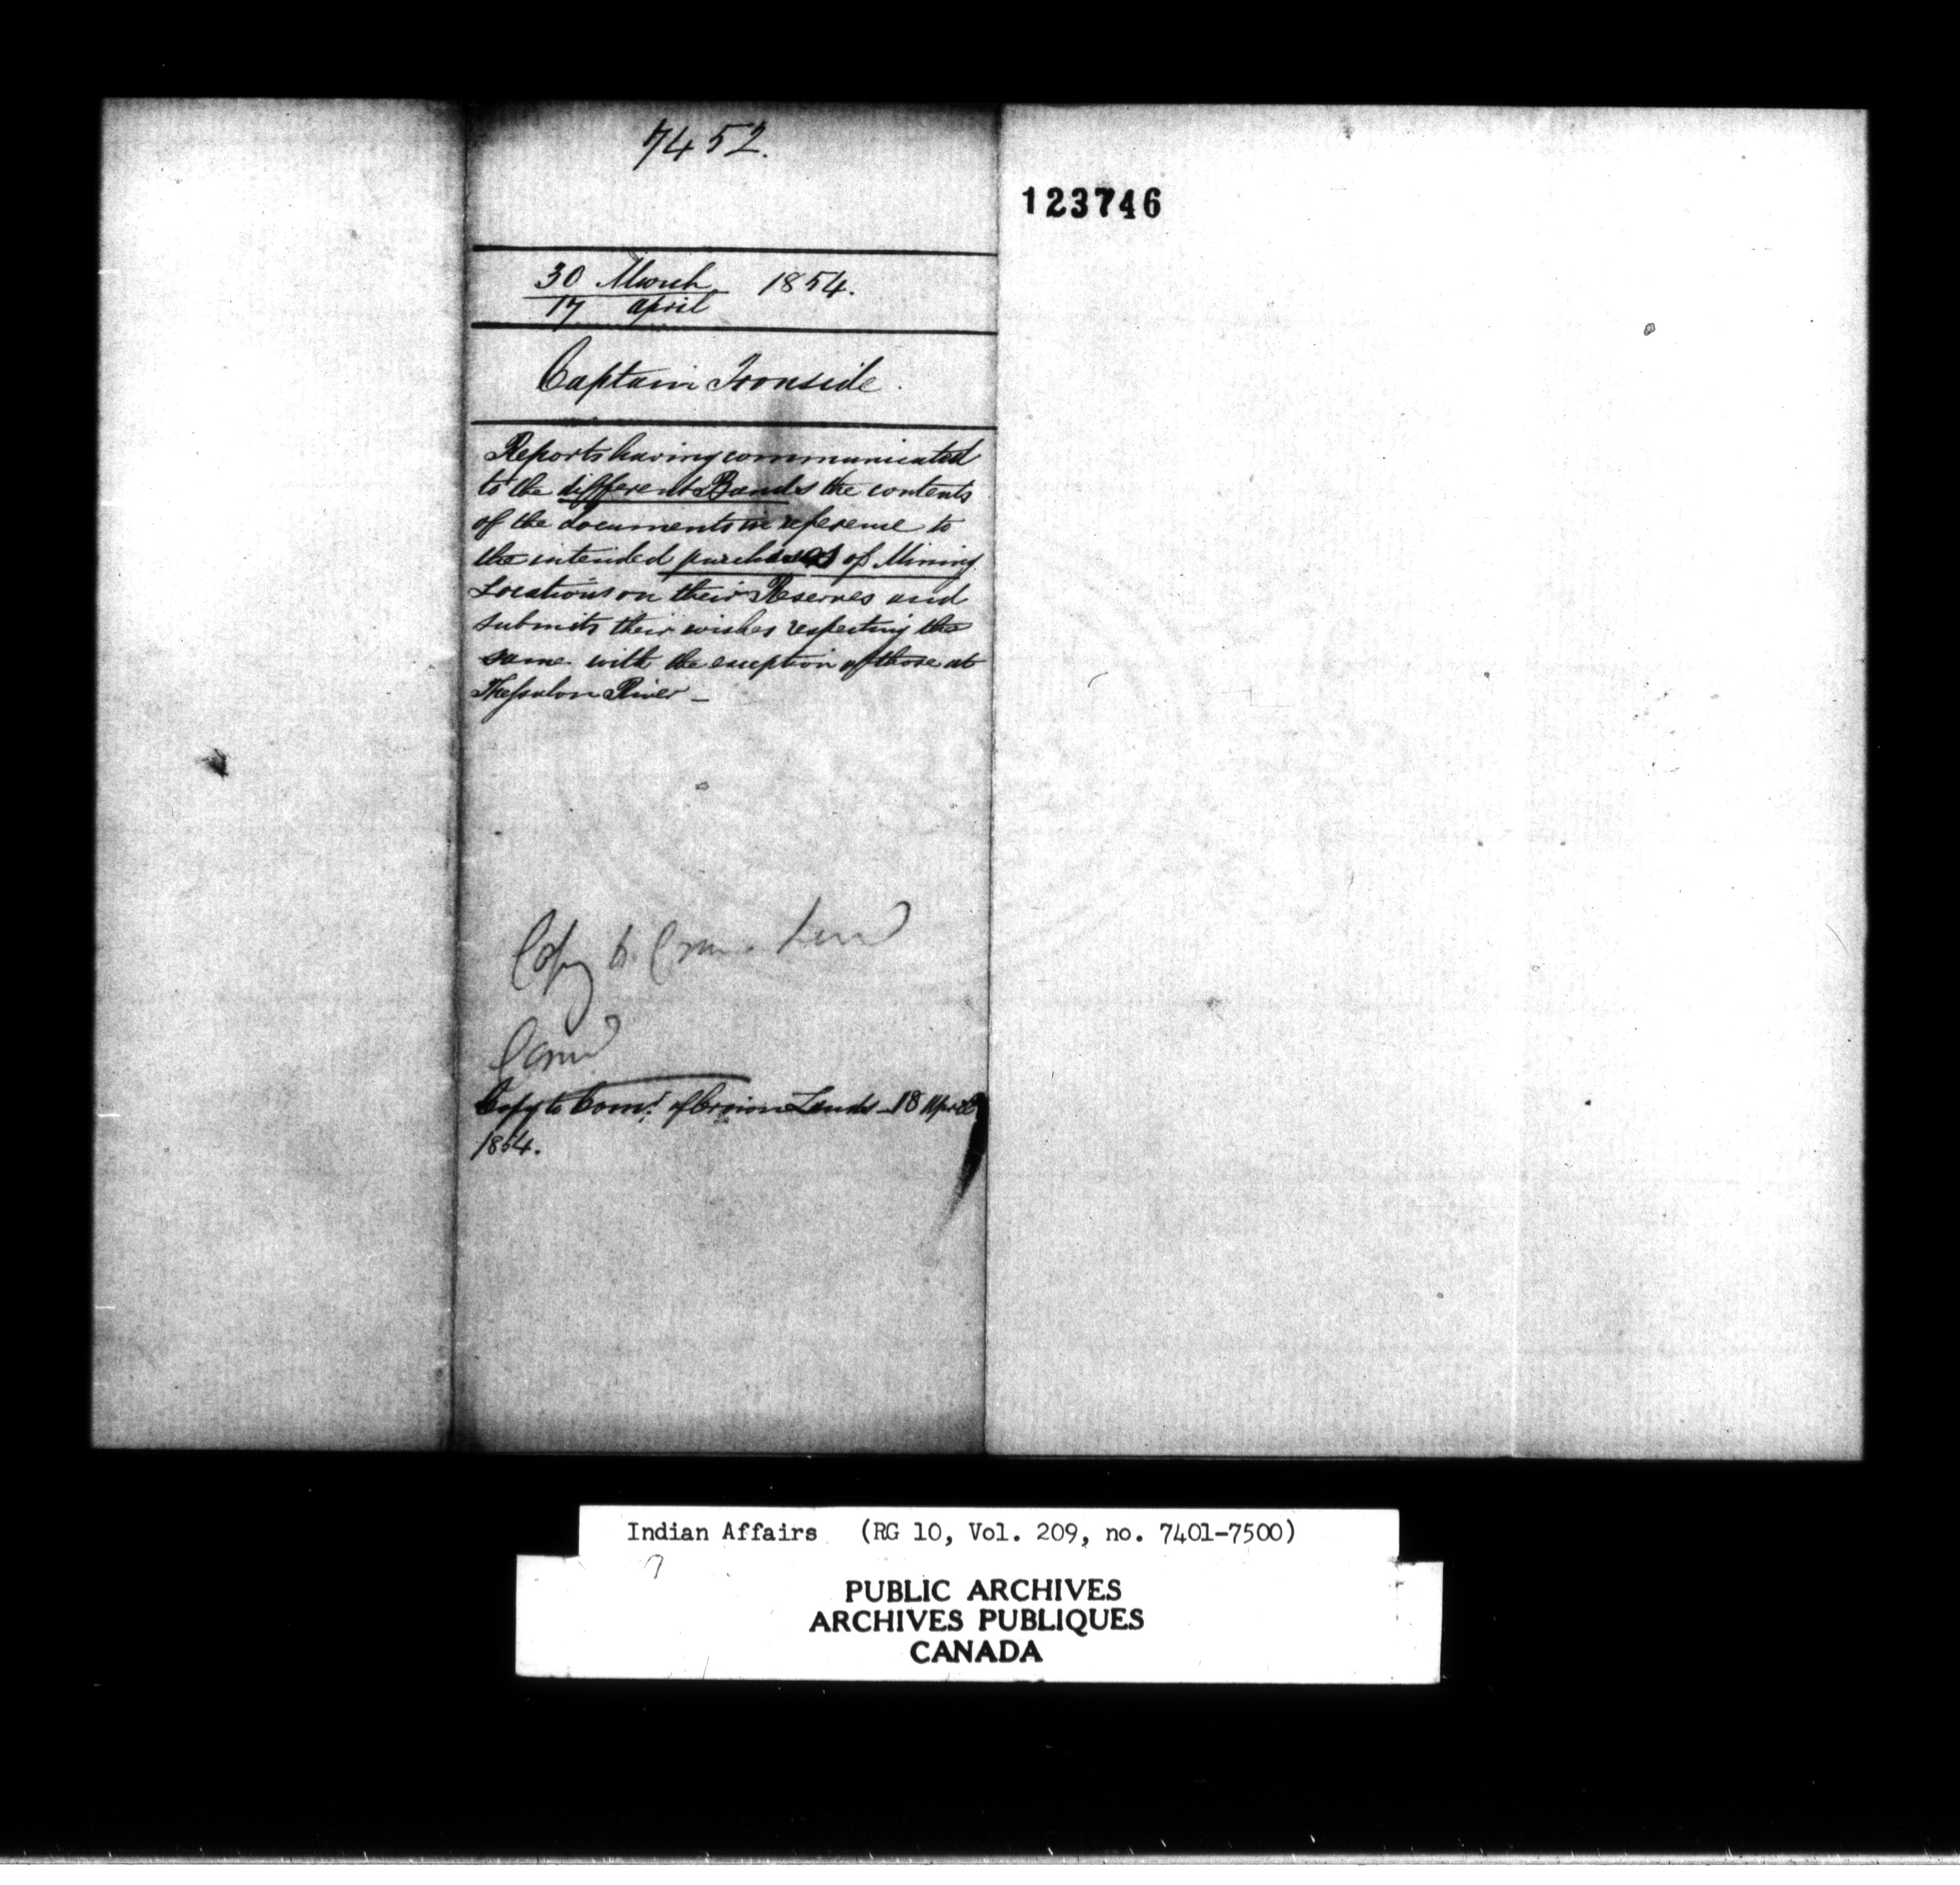 7452.
123746
30 March 1854.
17 april
Captain Ironside.
Reports having communicated
to the different Bands the contents
of the documents in reference to
the intended purchases of Mining
Locations on their Reserves and
submits their wishes respecting the
same with the exception of those at
Thessalon River –
Copy to Crown Land
Comr
Copy to Comr. of Crown Lands – 18 April
1854.
Indian Affairs (RG 10, Vol. 209, no. 7401-7500)
PUBLIC ARCHIVES
ARCHIVES PUBLIQUES
CANADA